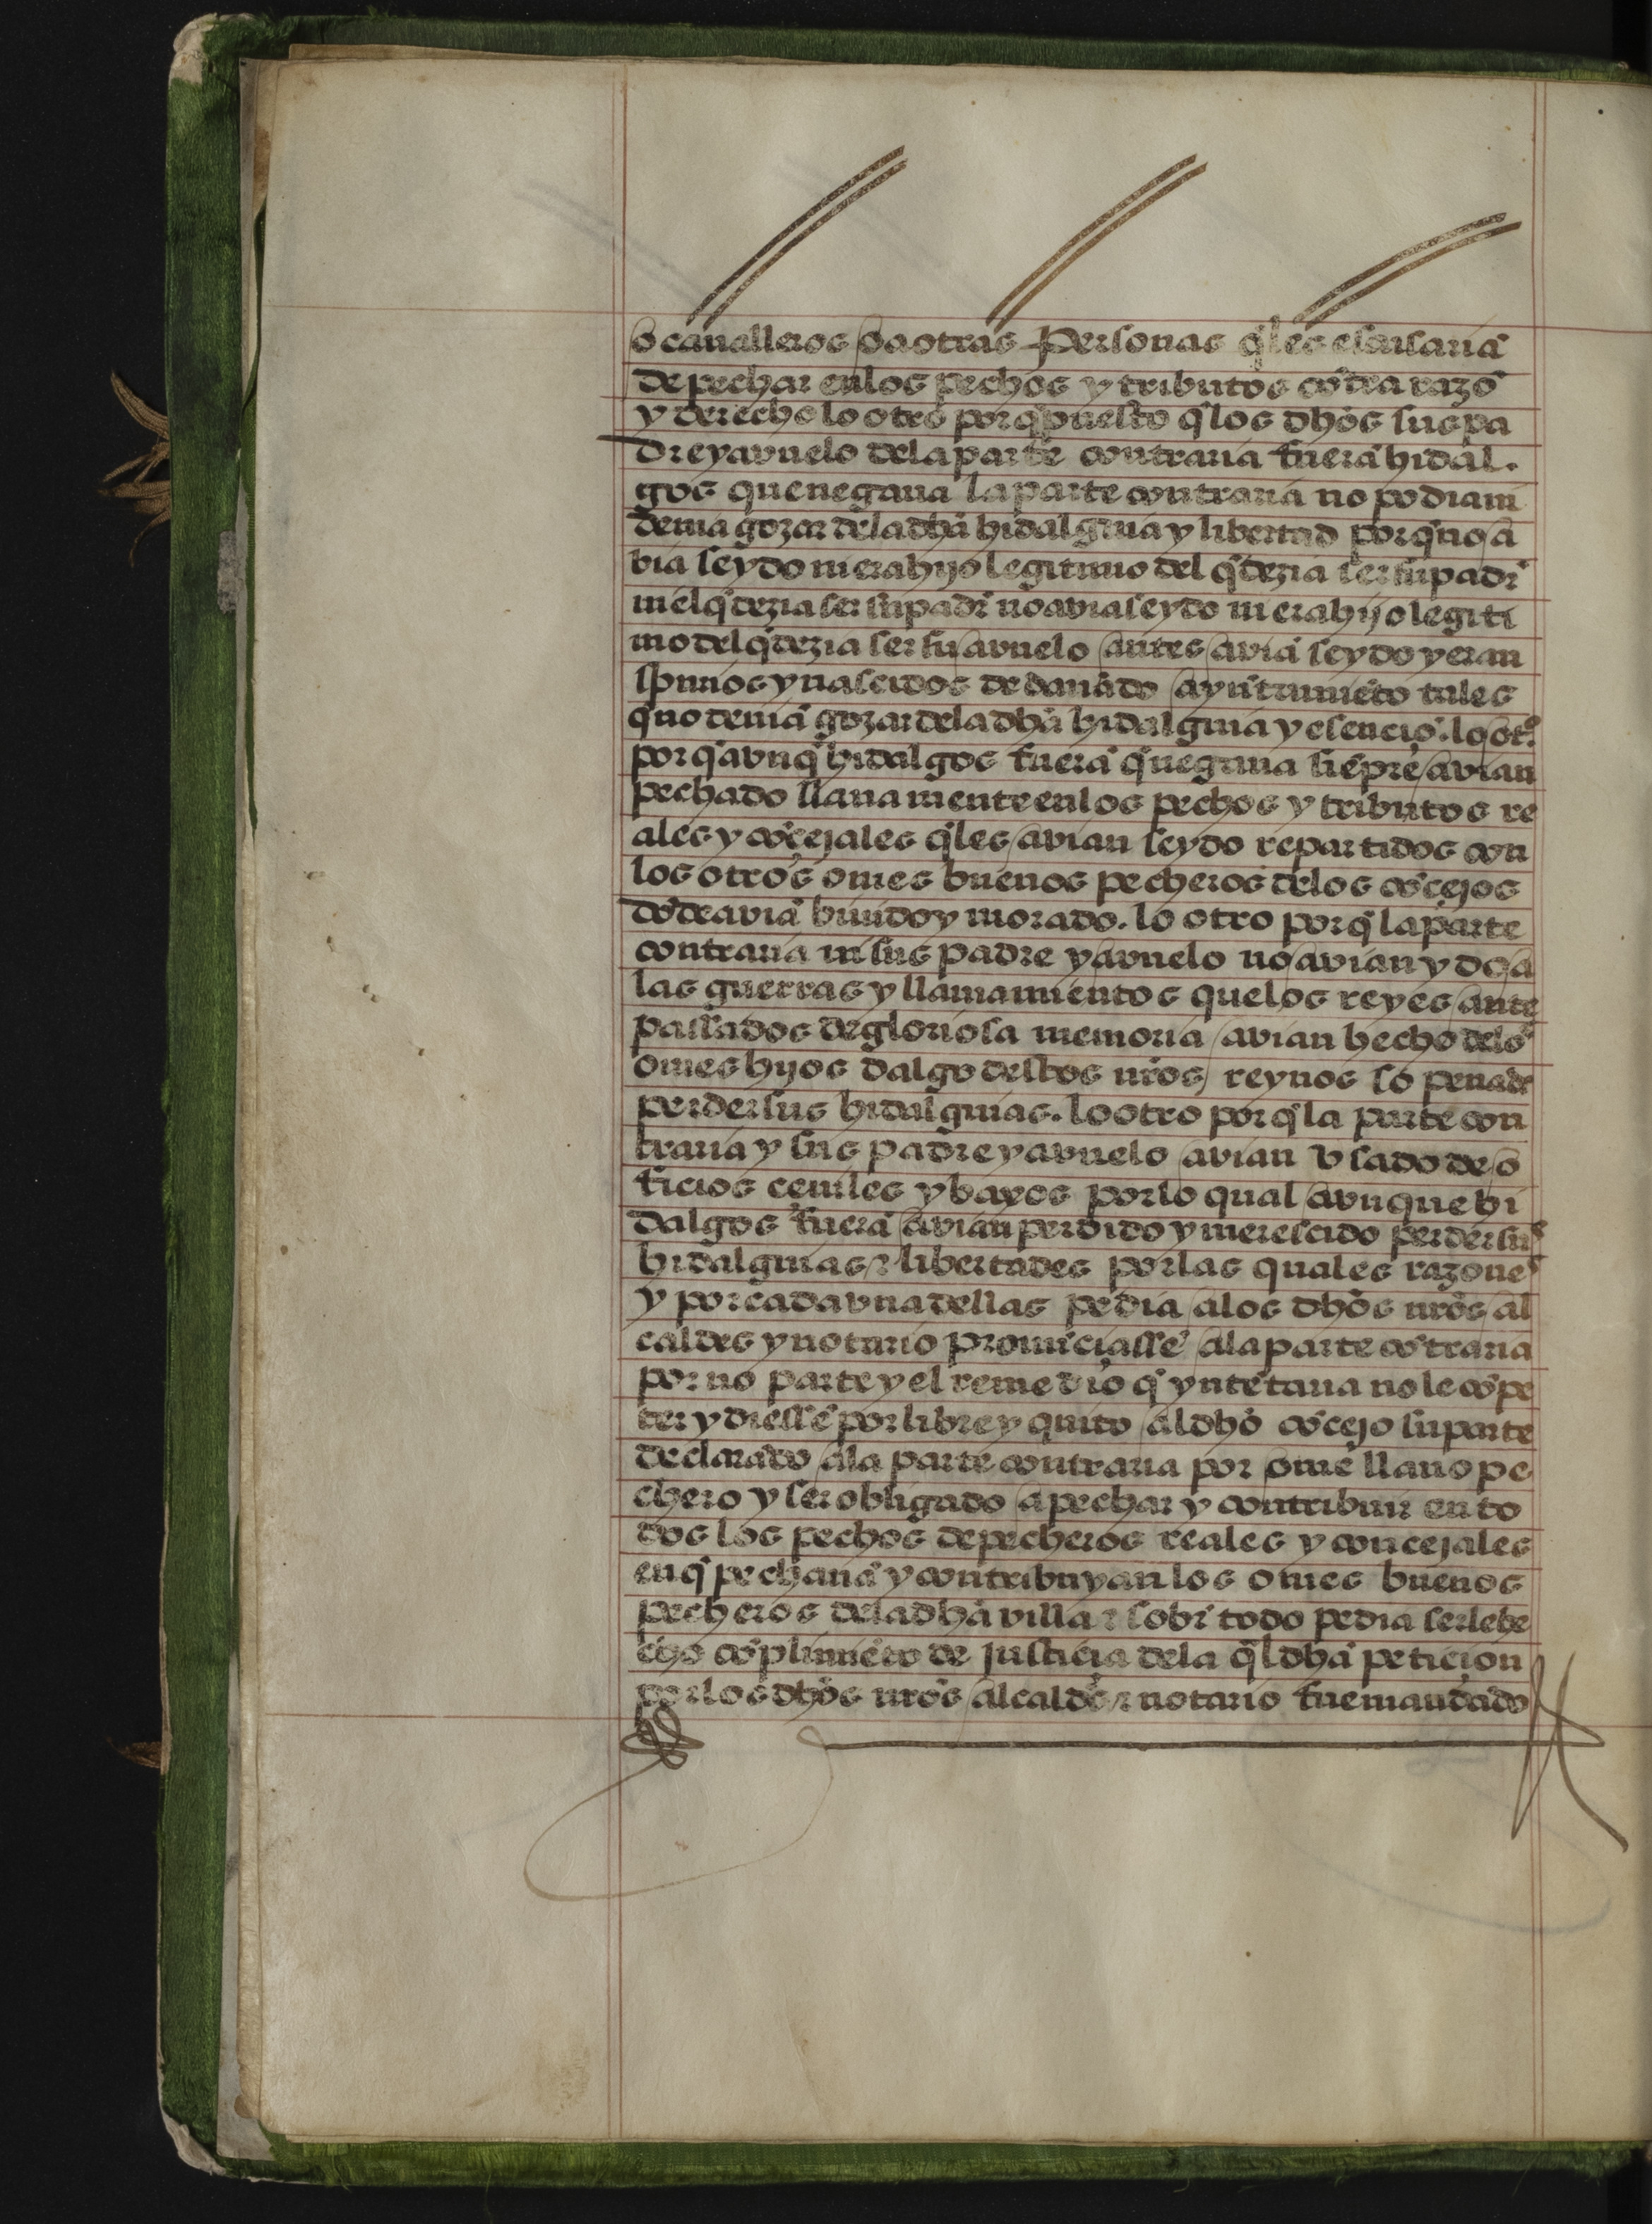 o caualleros o a otras personas q̃ les escusauā
de pechar en los pechos y tributos cõtra razõ
y derecho lo otro por q̃ puesto q̃ los dhõs sus pa
dre y avuelo dela parte contraria fuerã hidal.
gos que negaua la parte contraria no podia ni
deuia gozar dela dhã hidalguia y libertad por q̃ no a
bia seydo ni era hijo legitimo del q̃ dezia ser su padr̃
ni el q̃ dezia ser su padr̃ no avia seydo ni era hijo legiti
mo del q̃ dezia ser su avuelo antes aviã seydo y eran
spurios y nascidos de danãdo ayũtamiẽto tales
q̃ no deuiã gozar dela dhã hidalguia y esenciõ. lo otrº
por q̃ avnq̃ hidalgos fuerã q̃ negaua siẽpre avian
pechado llanamente en los pechos y tributos re
ales y cõcejales q̃ les avian seydo repartidos con
los otros omes buenos pecheros delos cõcejos
dõde aviã biuido y morado. lo otro por q̃ la parte
contraria ni sus padre y avuelo no avian ydo a
las guerras y llamamientos que los reyes ante
passados de gloriosa memoria avian hecho delos
omes hijos dalgo destos nr̃os reynos so pena de
perder sus hidalguias. lo otro por q̃ la parte con
traria y sus padre y avuelo avian vsado de o
ficios ceuiles y baxos por lo qual avn que hi
dalgos fuerã avian perdido y merescido perder sus
hidalguias ⁊ libertades por las quales razones
y por cada vna dellas pedia a los dhõs nr̃os al
caldes y notario pronũciassẽ ala parte cõtraria
por no parte y el remedio q̃ yntẽtaua no le cõpe
ter y diessẽ por libre y quito al dhõ cõcejo su parte
declarãdo ala parte contraria por ome llano pe
chero y ser obligado a pechar y contribuir en to
dos los pechos de pecheros reales y concejales
en q̃ pechauã y contribuyan los omes buenos
pecheros dela dhã villa ⁊ sobr̃ todo pedia ser le he
cho cõplimiẽto de justicia dela q̃l dhã peticion
por los dhõs nr̃os alcaldes ⁊ notario fue mandado